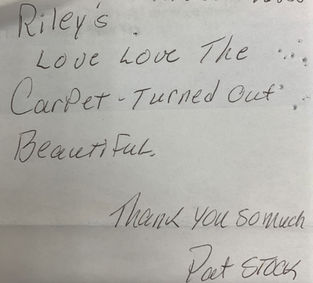 Riley's
Love Love The
Carpet - Turned Out
Beautiful.
Thank you so much
Pat Stock